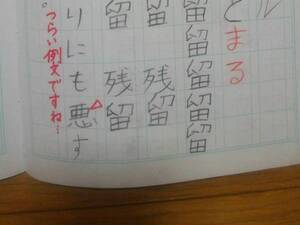 ル
とまる
留留留留留
留残留
留残留
りにも悪す
。
つらい例文ですね…